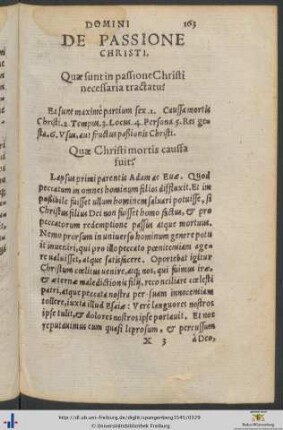 DOMINI 163
DE PASSIONE
CHRISTI.
Quæ sunt in passione Christi
necessaria tractatu?
Et sunt maximè partium sex .1. Caussa mortis
Christi .2. Tempus .3. Locus .4. Persona .5. Res ge
sta .6. Vsus, aut fructus passionis Christi.
Quæ Christi mortis caussa
fuit?
Lapsus primi parentis Adam ac Euæ. Quod
peccatum in omnes hominum filios diffluxit. Et im
poßibile fuisset ullum hominem saluari potuisse, si
Christus filius Dei non fuisset homo factus, & pro
peccatorum redemptione passus atque mortuus.
Nemo prorsum in uniuerso hominum genere potu
it inueniri, qui pro illo peccato pœnitentiam age-
re ualuisset, atque satisfacere. Oportebat igitur
Christum cœlitus uenire, atq; nos, qui fuimus iræ,
& æternæ maledictionis filij, reconciliare cœlesti
patri, atque peccata nostra per suam innocentiam
tollere, iuxta illud Esaiæ: Verè languores nostros
ipse tulit, & dolores nostros ipse portauit. Et nos
reputauimus eum quasi leprosum, & percussum
X 3 à Deo,
http://dl.ub.uni-freiburg.de/diglit/spangenberg1545/0329
© Universitätsbibliothek Freiburg